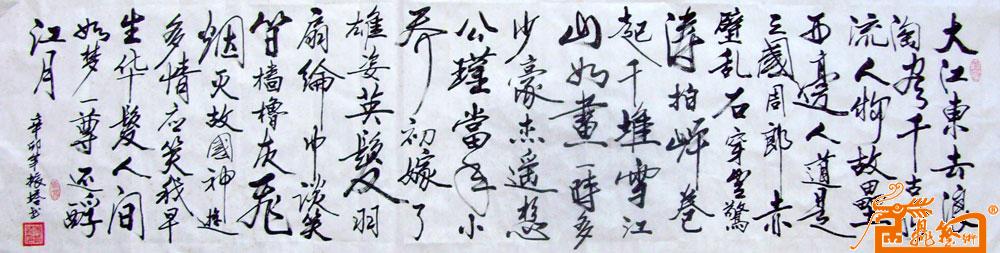 大江東去浪
淘尽千古風
流人物故壘
西邊人道是
三國周郎赤
壁乱石穿雲驚
涛拍岸卷
起千堆雪江
山如畫一時多
少豪杰遥想
公瑾當年小
乔初嫁了
雄姿英髮羽
扇綸巾谈笑
间檣櫓灰飛
烟灭故國神遊
多情应笑我早
生华髮人间
如梦一尊还酹
江月
辛卯年振培书